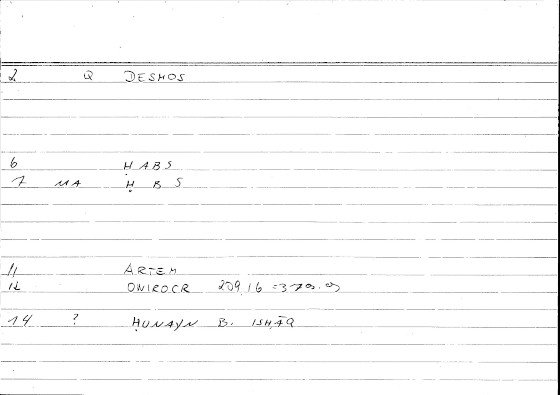 2 Q DESMOS
6 ḤABS
7 MA Ḥ B S
11 ARTEM
12 ONIROCR 209,16 =
14 ? ḤUNAYN B. ISḤĀQ